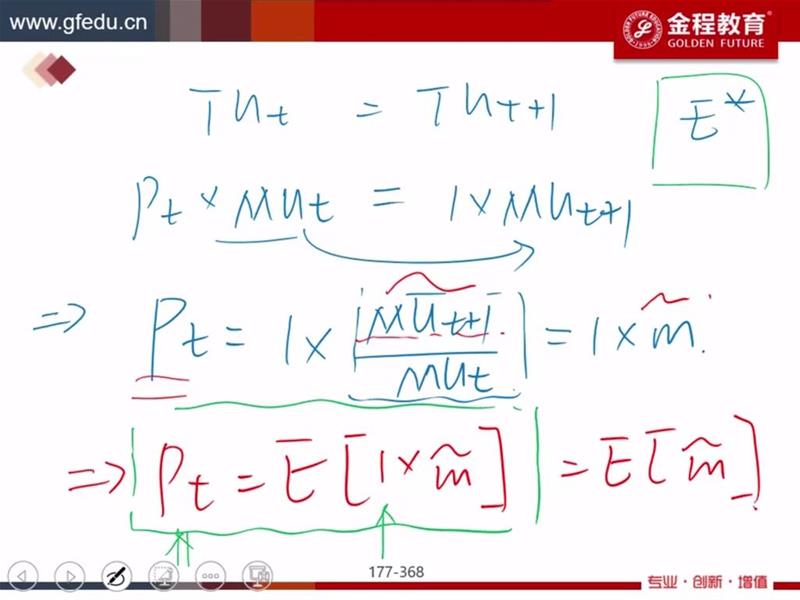 www.gfedu.cn
金程教育®
GOLDEN FUTURE
TUt = TUt+1
E*
Pt × MUt = 1×MUt+1
⇒ Pt = 1× MUt+1 / MUt = 1× m̃.
⇒ Pt = E[1×m̃] = E[m̃]
177-368
专业·创新·增值